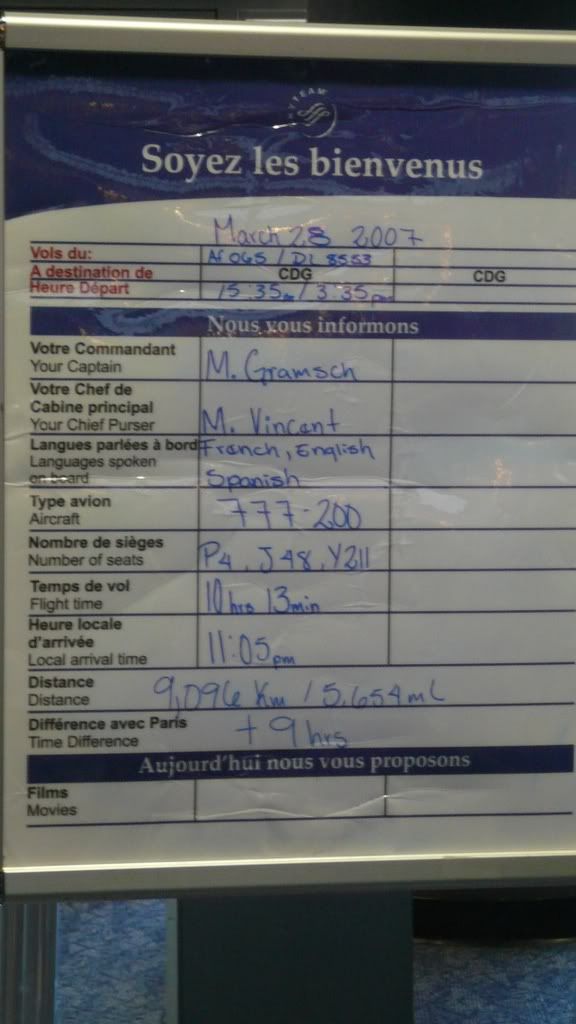 SKYTEAM
Soyez les bienvenus
March 28 2007
Vols du: AF 065 / DL 8553
A destination de CDG CDG
Heure Départ 15:35 / 3:35pm
Nous vous informons
Votre Commandant
Your Captain M. Gramsch
Votre Chef de
Cabine principal
Your Chief Purser M. Vincent
Langues parlées à bord French, English
Languages spoken
on board Spanish
Type avion
Aircraft 777-200
Nombre de sièges
Number of seats P4, J48, Y211
Temps de vol
Flight time 10 hrs 13 min
Heure locale
d'arrivée
Local arrival time 11:05 pm
Distance
Distance 9,096 Km / 5,654 mL
Différence avec Paris
Time Difference + 9 hrs
Aujourd'hui nous vous proposons
Films
Movies